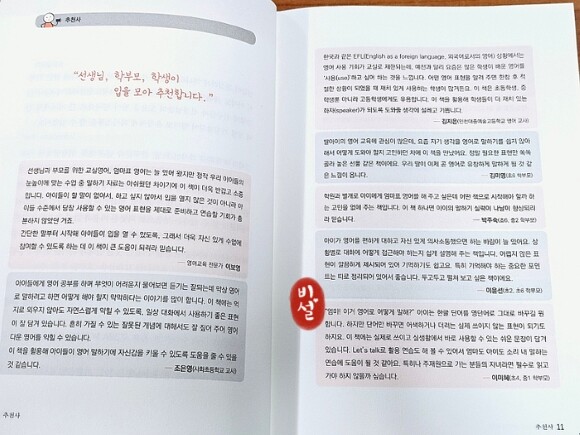 추천사
“선생님, 학부모, 학생이
입을 모아 추천합니다.”
선생님과 부모를 위한 교실영어, 엄마표 영어는 늘 있어 왔지만 정작 우리 아이들의
눈높이에 맞는 수업 중 말하기 자료는 아쉬웠던 차이기에 이 책이 더욱 반갑고 소중
합니다. 아이들이 할 말이 없어서, 하고 싶지 않아서 입을 열지 않은 것이 아니라 아
이들 수준에서 당장 사용할 수 있는 영어 표현을 제대로 준비하고 연습할 기회가 충
분하지 않았던 거죠.
간단한 말부터 시작해 아이들이 입을 열 수 있도록, 그래서 더욱 자신 있게 수업에
참여할 수 있도록 하는 데 이 책이 큰 도움이 되리라 믿습니다.
— 영어교육 전문가 이보영
아이들에게 영어 공부를 하며 무엇이 어려운지 물어보면 듣기는 잘되는데 막상 영어
로 말하려고 하면 어떻게 해야 할지 막막하다는 이야기를 많이 합니다. 이 책에는 억
지로 외우지 않아도 자연스럽게 익힐 수 있도록, 일상 대화에서 사용하기 좋은 표현
이 잘 담겨 있습니다. 흔히 가질 수 있는 잘못된 개념에 대해서도 잘 짚어 주어 영어
다운 영어를 익힐 수 있습니다.
이 책을 활용해 아이들이 영어 말하기에 자신감을 키울 수 있도록 도움을 줄 수 있을
것 같습니다.
— 조은영(시화초등학교 교사)
추천사
한국과 같은 EFL(English as a foreign language, 외국어로서의 영어) 상황에서는
영어 사용 기회가 교실로 제한되는데, 예전과 달리 요즘은 많은 학생이 배운 영어를
'사용(use)'하고 싶어 하는 것을 느낍니다. 어떤 영어 표현을 알려 주면 한참 후 적
절한 상황이 되었을 때 재치 있게 사용하는 학생이 많거든요. 이 책은 초등학생, 중
학생뿐 아니라 고등학생에게도 유용합니다. 이 책을 활용해 학생들이 더 재치 있는
화자(speaker)가 되도록 도와줄 생각에 설레고 기쁩니다.
— 김지은(인천대중예술고등학교 영어 교사)
딸아이의 영어 교육에 관심이 많은데, 요즘 자기 생각을 영어로 말하기를 쉽지 않아
해서 어떻게 도와야 할지 고민하던 차에 이 책을 만났네요. 정말 필요한 표현만 쏙쏙
골라 놓은 선물 같은 책이에요. 우리 딸이 이제 곧 영어로 유창하게 말하게 될 것 같
은 느낌이 옵니다.
— 김미영(초6 학부모)
학원과 별개로 아이에게 엄마표 영어를 해 주고 싶은데 어떤 책으로 시작해야 할까 하
는 고민을 없애 주는 책입니다. 이 책 하나면 아이의 말하기 실력이 나날이 향상되리
라 믿습니다.
— 박주숙(초6, 중2 학부모)
아이가 영어를 편하게 대하고 자신 있게 의사소통했으면 하는 바람이 늘 있어요. 상
황별로 대화에 어떻게 접근해야 하는지 쉽게 설명해 주는 책입니다. 어렵지 않은 표
현이 깔끔하게 제시되어 있어 기억하기도 쉽고요. 특히 기억해야 하는 중요한 포인
트는 따로 정리되어 있어서 좋습니다. 두고두고 펼쳐 보고 싶은 책이에요.
— 이윤선(초2, 초6 학부모)
비설
"엄마! 이거 영어로 어떻게 말해?" 아이는 한글 단어를 영단어로 그대로 바꾸길 원
합니다. 하지만 단어만 바꾸면 어색하거나 더러는 실제 쓰이지 않는 표현이 되기도
하지요. 이 책에는 실제로 쓰이고 실생활에서 바로 사용할 수 있는 쉬운 문장이 담겨
있습니다. Let's talk으로 활용 연습도 해 볼 수 있어서 엄마도 아이도 소리 내 말하
는 연습에 도움이 될 것 같아요. 특히나 주재원으로 가는 분들의 자녀라면 필수로 읽고
가야 하지 않을까 싶습니다.
— 이미혜(초4, 중1 학부모)
추천사 11